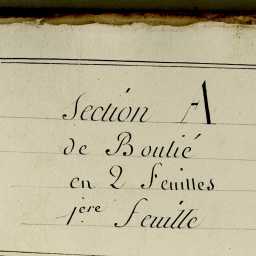 Section A
de Boulié
en 2 Feuilles
1ère Feuille